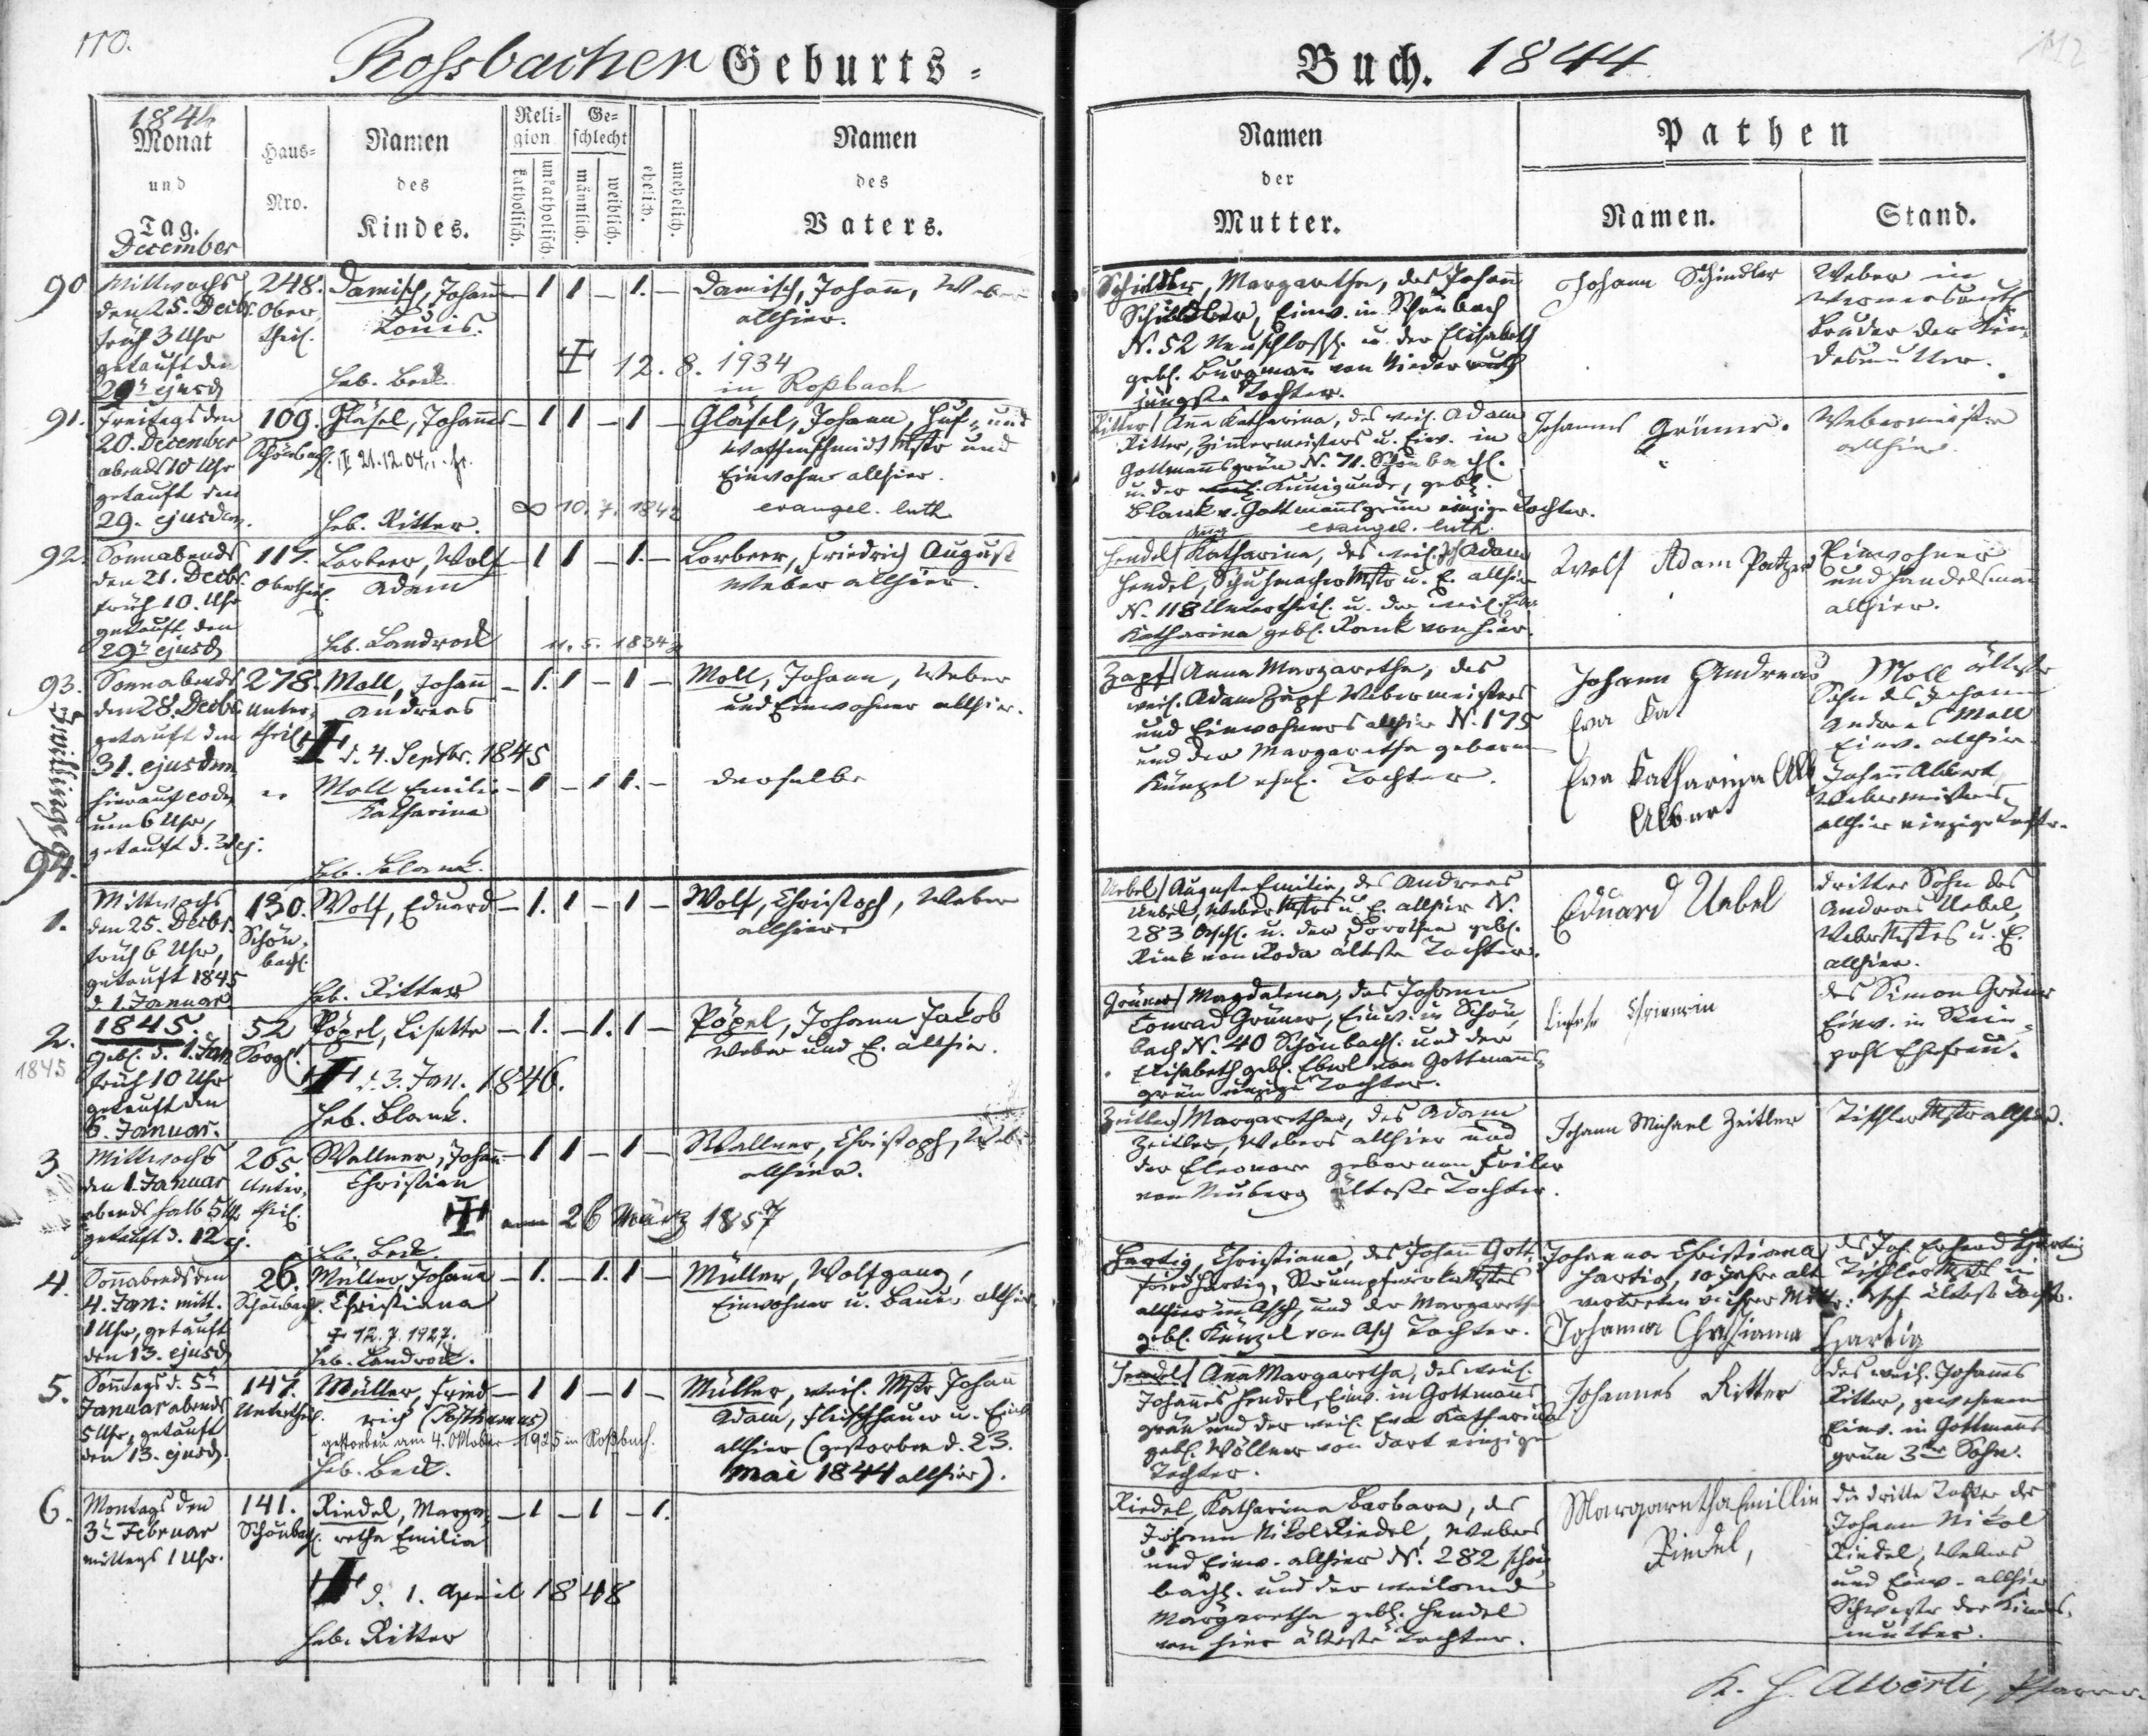 110.
112
Rossbacher Geburts-
Buch. 1844
1844
Monat
und
Tag.
December
Haus-
Nro.
Namen
des
Kindes.
Reli-
gion
katholisch.
unkatholisch.
Ge-
schlecht
männlich.
weiblich.
ehelich.
unehelich.
Namen
des
Vaters.
Namen
der
Mutter.
Pathen
Namen.
Stand.
90
Mittwochs
den 25. Decbr.
früh 3 Uhr
getauft den
29. ejusd
248.
Ober
theil.
Damisch, Johann
Louis.
Heb. Beck.
1 1 – 1. –
Damisch, Johann, Weber
allhier.
12. 8. 1934
in Roßbach
Schindler, Margaretha, des Johann
Schindler, Einw. in Schönbach
N. 52 Neuschloßth. u. der Elisabeth
gebl. Burgmann von Niederreuth
jüngste Tochter.
Johann Schindler
Weber in
Wernersreuth
Bruder der Kin-
desmutter.
91.
Freitags den
20. December
abends 10 Uhr
getauft den
29. ejusdem.
109.
Schönbachl.
Gläsel, Johannes
21.12.04
Heb. Ritter.
1 1 – 1 –
Gläsel, Johann, Huf- und
Waffenschmidt Mstr und
Einwohner allhier.
evangel. luth
∞ 10. 7. 1842
Ritter, Anna Katharina, des weil. Adam
Ritter, Zimmermeisters u. Einw. in
Gottmannsgrün N. 71. Schönbachl.
u. der Kunigunde, gebl.
Blank v. Gottmannsgrün einzige Tochter.
evangel. luth.
Johannes Grüner.
Webermeister
allhier.
92.
Sonnabends
den 21. Decbr.
früh 10. Uhr
getauft den
29. ejusd
117.
Obertheil.
Lorbeer, Wolf
Adam
Heb. Landrock
1 1 – 1. –
11. 5. 1834
Lorbeer, Friedrich August
Weber allhier.
Hendel, Anna Katharina, des weil. Joh Adam
Hendel, Schuhmacher Mstr u. E. allhier
N. 118 Untertheil. u. der weil. Eva
Katharina gebl. Rank von hier.
Wolf Adam Patzer
Einwohner
und Handelsmann
allhier.
93.
Zwillinge
94.
Sonnabends
den 28. Decbr.
getauft den
31. ejusdem
hierauf eod.
um 6 Uhr,
getauft d. 31 ej.
278.
Unter-
theil
Moll, Johann
Andreas
d. 4. Septbr. 1845
– 1. 1 – 1 –
Moll, Johann, Weber
und Einwohner allhier.
Moll Emilie
Katharina
Heb. Blank.
– 1 – 1 1. –
derselbe
Zapf, Anna Margaretha, des
weil. Adam Zapf Webermeisters
und Einwohners allhier N. 175
und der Margaretha geborne
Künzel ehel. Tochter.
Johann Andreas
Eva Kat
Eva Katharina Alb
Albert
Moll älteste
Sohn des Johann
Andreas Moll
Einw. allhier.
Johann Albert,
Webermeisters
allhier einzige Tochter.
1.
Mittwochs
den 25. Decbr.
früh 6 Uhr,
getauft 1845
d. 1. Januar
130.
Schön-
bachl.
Wolf, Eduard
Heb. Ritter
– 1. 1 – 1 –
Wolf, Christoph, Weber
allhier
Uebel, Auguste Emilie, des Andreas
Uebel, Weber Mstrs u. E. allhier N.
283 u. der Dorothea gebl.
Rink von Roda älteste Tochter.
Eduard Uebel
Dritter Sohn des
Andreas Uebel,
Weber Mstrs u. E.
allhier.
2.
1845
1845.
gebl. d. 1. Jan
früh 10 Uhr
getauft den
6. Januar.
52
Sorgl.
Pögel, Lisette
d. 3. Jan. 1846.
Heb. Blank.
– 1. – 1. 1 –
Pögel, Johann Jakob
Weber und E. allhier.
Grüner, Magdalena, des Johann
Conrad Grüner, Einw. in Schön-
bach N. 40 Schönbachl. und der
Elisabeth gebl. Eberl von Gottmanns-
grün einzige Tochter.
des Simon Grüner
Einw. in Stein-
pöhl Ehefrau.
3.
Mittwochs
den 1. Januar
abends halb 5 Uhr
getauft d. 12 ej.
265
Unter-
theil.
Wallner, Johann
Christian
Heb. Beck.
– 1 1 – 1 –
am 26 März 1857
Wallner, Christoph, Web
allhier.
Zeitler, Margaretha, des Adam
Zeitler, Webers allhier und
der Eleonore gebornen
von Neuberg älteste Tochter.
Johann Michael Zeitler
Tischler Mstr allhier.
4.
Sonnabends den
4. Jan: mitt.
1 Uhr, getauft
den 13. ejusd
26.
Schönbachl.
Müller, Johanna
Christiana
12. 7. 1927.
Heb. Landrock.
– 1. – 1. 1 –
Müller, Wolfgang,
Einwohner u. Bauer allhier.
Hartig, Christiana, des Johann Gott-
fried Hartig, Strumpfwirker Mstrs
allhier in Asch, und der Margaretha
gebl. Künzel von Asch Tochter.
Johanna Christiana
Hartig, 10 Jahre alt
vertreten v. ihrer Mutter:
Johanna Christiana Hartig
des Joh. Erhard Hartig
Tischler Mstrs in
Asch älteste Tocht.
5.
Sonntags d. 5
Januar abends
5 Uhr, getauft
den 13. ejusd.
147.
Untertheil.
Müller, Fried-
rich (Posthumus)
gestorben am 4. Oktober 1925 in Roßbach.
Heb. Beck.
– 1 1 – 1 –
Müller, weil. Mstr Johann
Adam, Fleischhauer u. Einw
allhier (gestorben d. 23.
Mai 1844 allhier).
Hendel, Anna Margaretha, des weil.
Johannes Hendel, Einw. in Gottmanns-
grün und der weil. Eva Katharina
gebl. Wöllner von dort einzige
Tochter.
Johannes Ritter
des weil. Johannes
Ritter, gewesenen
Einw. in Gottmanns-
grün 3ter Sohn.
6.
Montags den
3. Februar
mittags 1 Uhr.
141.
Schönbachl.
Riedel, Marga-
retha Emilia
d. 1. April 1848
Heb. Ritter
– 1 – 1 – 1.
Riedel, Katharina Barbara, des
Johann Nikol Riedel, Webers
und Einw. allhier N. 282 Schön-
bachl. und der weiland
Margaretha gebl. Hendel
von hier älteste Tochter.
Margaretha Emillie
Riedel,
die dritte Tochter des
Johann Nikol
Riedel, Webers
und Einw. allhier
Schwester der Kindes-
mutter.
K. H. Alberti, Pfarrer.